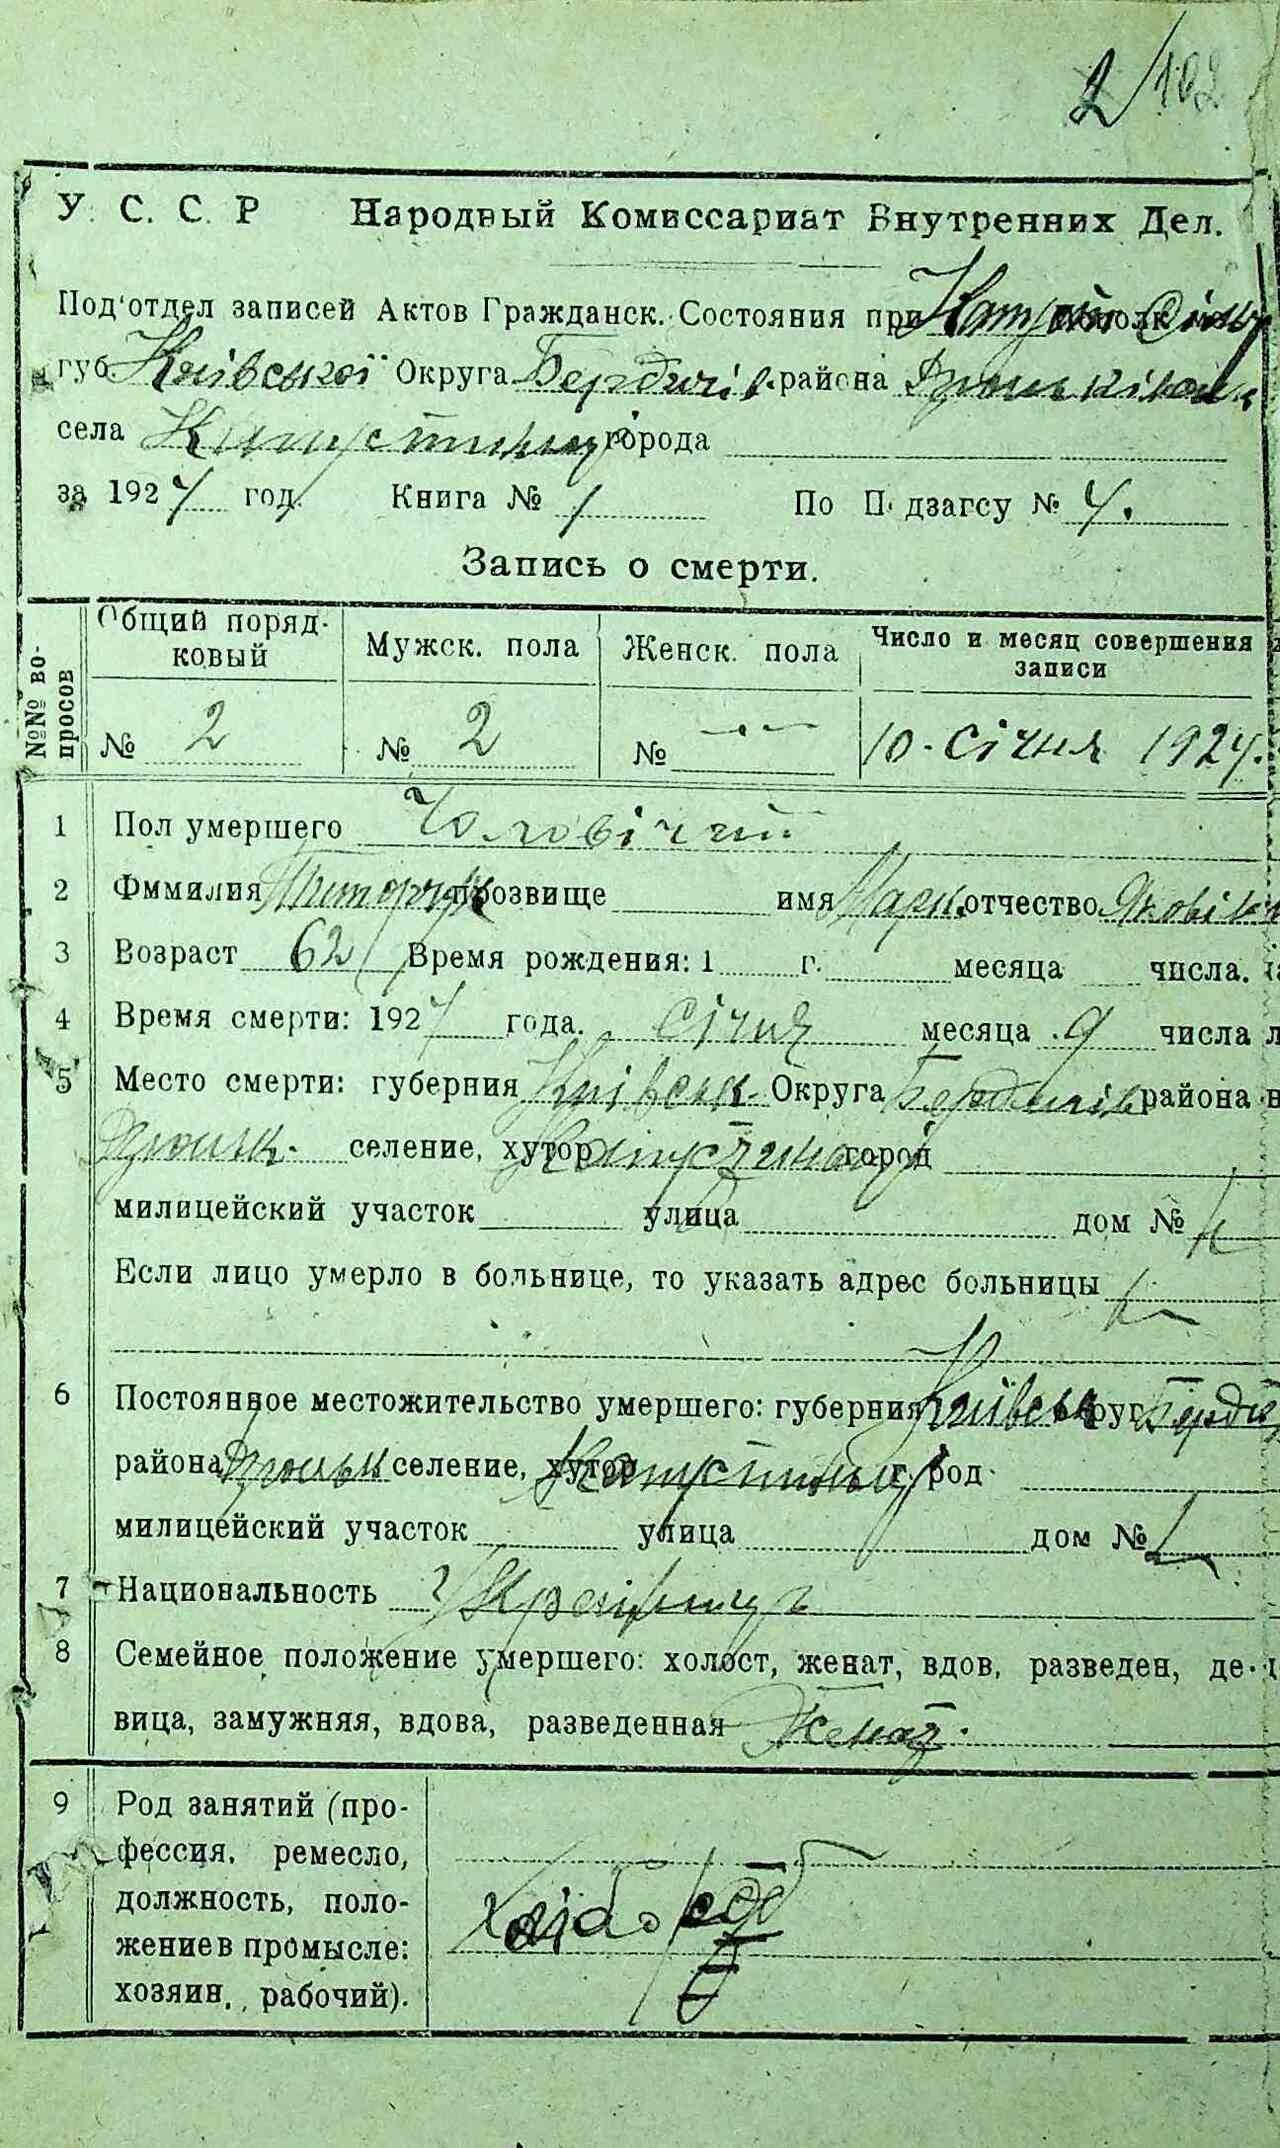 2/102
У. С. С. Р Народный Комиссариат Внутренних Дел.
Под'отдел записей Актов Гражданск. Состояния при
губ Київської Округа Бердичів. района
села города
за 1924 год. Книга № 1 По П дзагсу № 4.
Запись о смерти.
№№ во-
просов
Общий поряд-
ковый
Мужск. пола
Женск. пола
Число и месяц совершения
записи
№ 2 № 2 № 10. Січня 1924.
1 Пол умершего Чоловічий
2 Фммилия прозвище имя Марк отчество Яковів
3 Возраст 62 Время рождения: 1 г. месяца числа.
4 Время смерти: 1924 года. Січня месяца 9 числа
5 Место смерти: губерния Київськ. Округа Бердичів района
селение, хутор город
милицейский участок улица дом №
Если лицо умерло в больнице, то указать адрес больницы
6 Постоянное местожительство умершего: губерния Київськ округ Бердич
района селение, хутор г. род
милицейский участок улица дом №
7 Национальность Українець
8 Семейное положение умершего: холост, женат, вдов, разведен, де-
вица, замужняя, вдова, разведенная Женат.
9 Род занятий (про-
фессия, ремесло,
должность, поло-
жение в промысле:
хозяин, рабочий).
Хлібороб